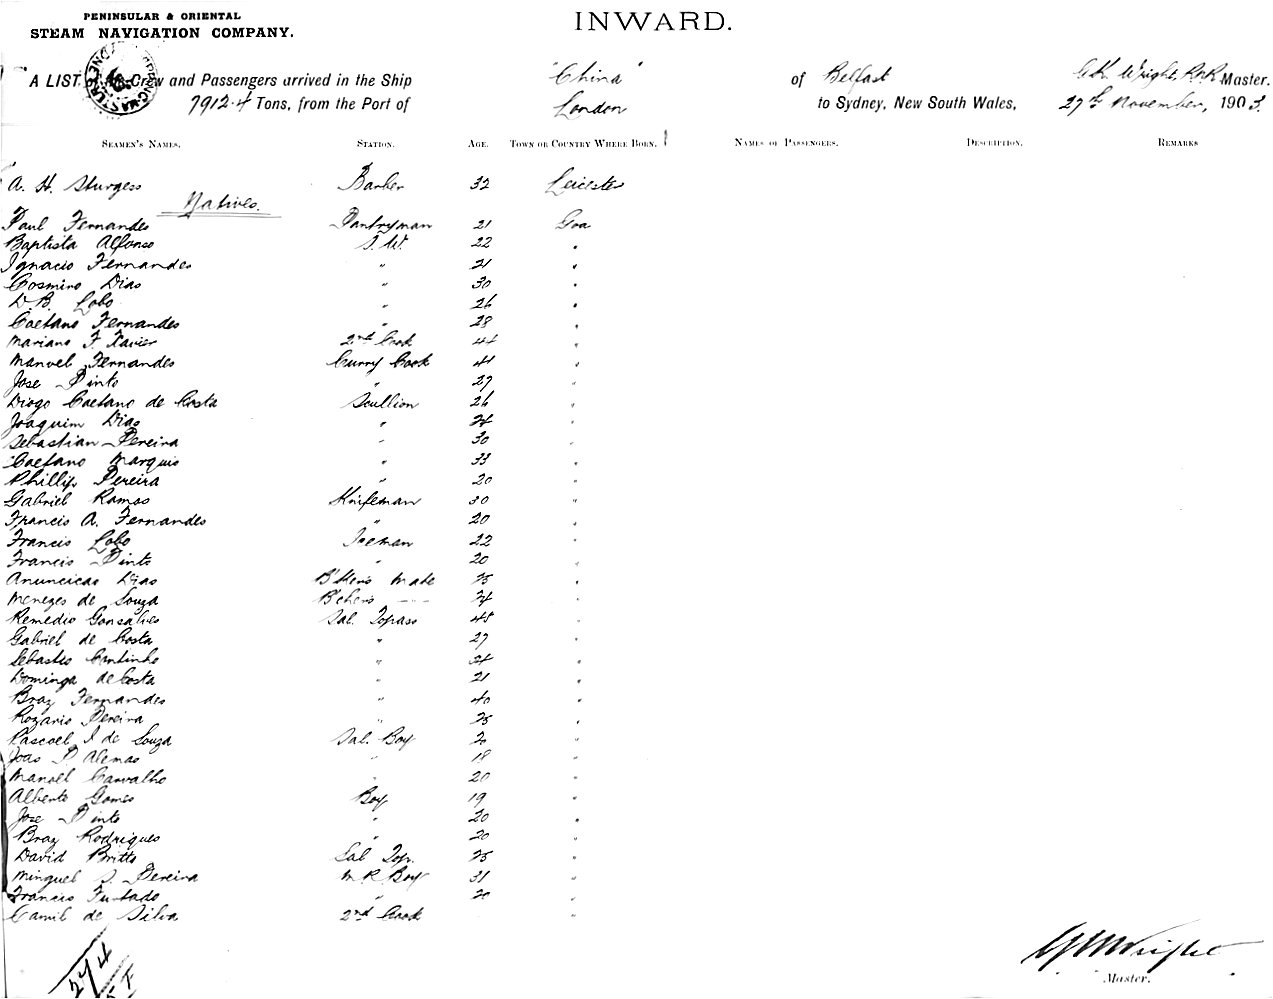 PENINSULAR & ORIENTAL
STEAM NAVIGATION COMPANY.
INWARD.
A LIST of All Crew and Passengers arrived in the Ship "China" of Belfast Wright, RNR Master.
7912·4 Tons, from the Port of London to Sydney, New South Wales, 27th November, 1903.
SEAMEN'S NAMES. STATION. AGE. TOWN OR COUNTRY WHERE BORN. NAMES OF PASSENGERS. DESCRIPTION. REMARKS
A. H. Sturgess Barber 32 Leicester
Natives.
Paul Fernandes Pantryman 21 Goa
Baptista Alfonso S. W. 22 "
Ignacio Fernandes " 21 "
Cosmino Dias " 30 "
D. B. Lobo " 26 "
Caetano Fernandes " 28 "
Mariano F. Xavier 2nd Cook 44 "
Manuel Fernandes Curry Cook 41 "
Jose Pinto " 27 "
Diogo Caetano de Costa Scullion 26 "
Joaquim Dias " 24 "
Sebastian Pereira " 30 "
Caetano Marquis " 33 "
Phillip Pereira " 20 "
Gabriel Ramos Knifeman 30 "
Francis A. Fernandes " 20 "
Francis Lobo Iceman 22 "
Francis Pinto " 20 "
Anuncicas Dias Mate 25 "
Menezes de Souza B'chers — 24 "
Remedio Gonsalves Sal. Topass 45 "
Gabriel de Costa " 27 "
Sebastio Continho " 24 "
Dominga de Costa " 21 "
Braz Fernandes " 40 "
Rozario Pereira " 25 "
Pascoel J. de Souza Sal. Boy 20 "
Joao P. Alemao " 18 "
Manoel Carvalho " 20 "
Alberto Gomes Boy 19 "
Jose Pinto " 20 "
Braz Rodrigues " 20 "
David Britto Sal Top. 25 "
Minguel S. Pereira M. R. Boy 31 "
Francis Furtado " 20 "
Camil de Silva 2nd Cook "
Wright
Master.
274